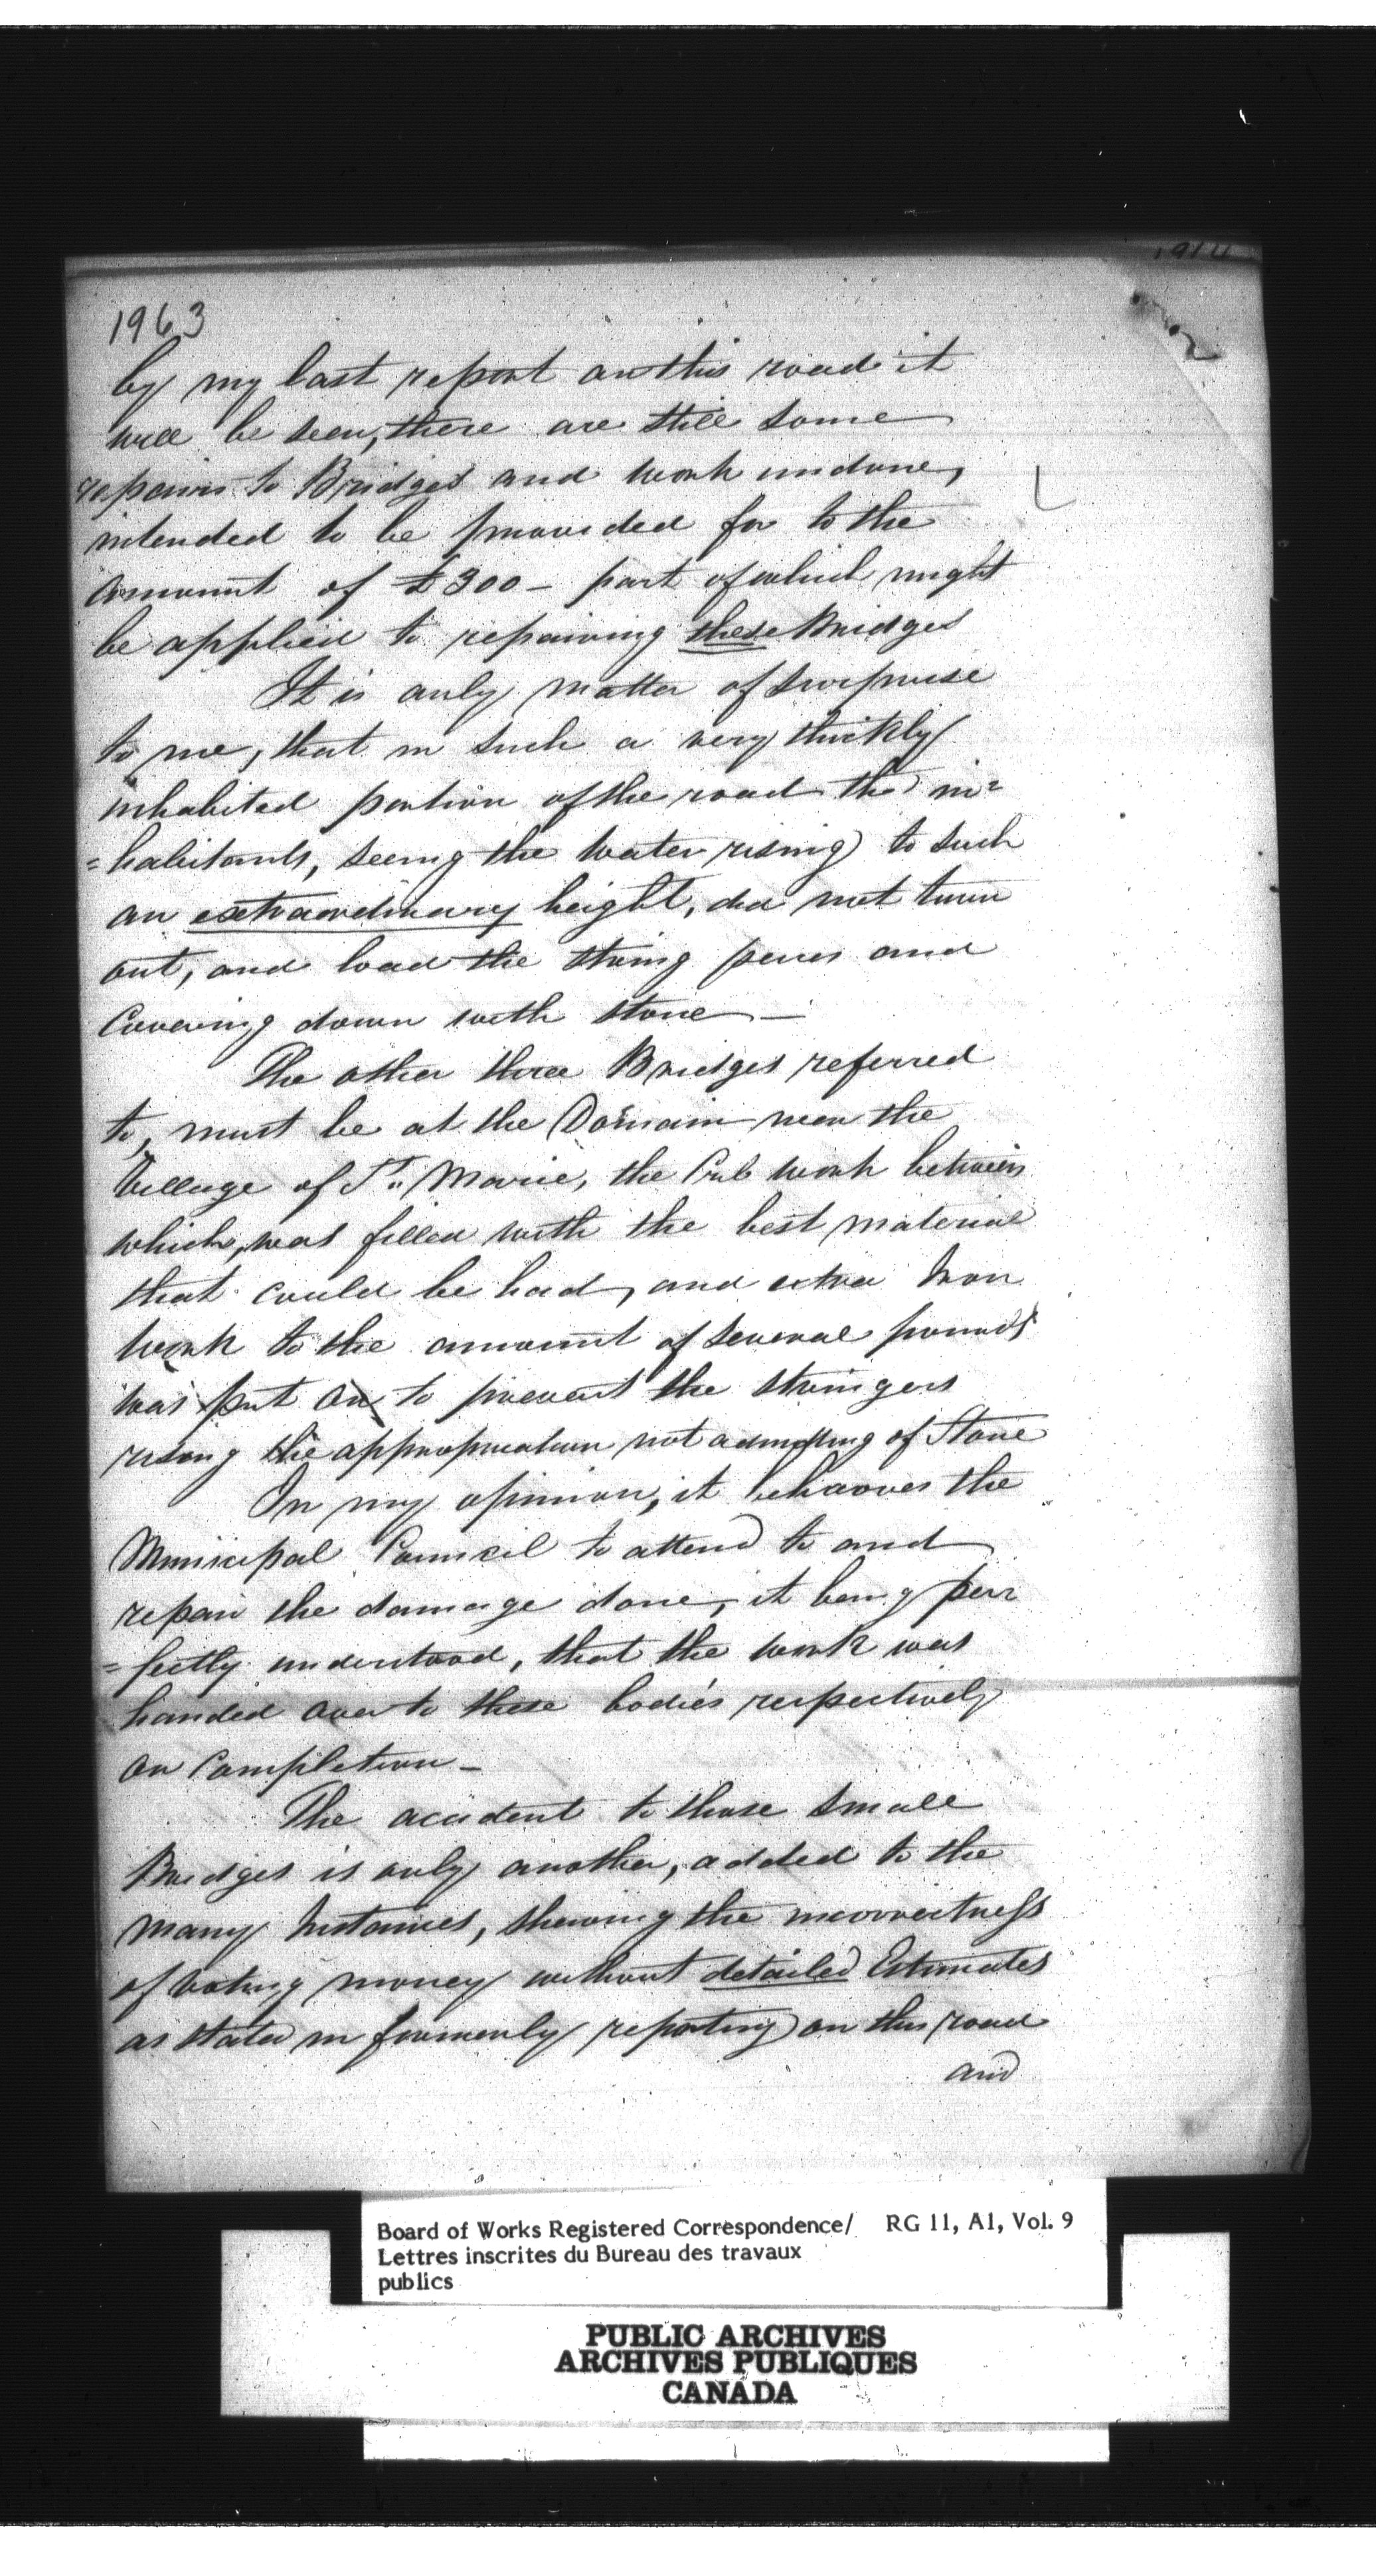 1963
2
by my last report on this road it
will be seen, there are still some
repairs to Bridges and work undone,
intended to be provided for to the
amount of £300 – part of which might
be applied to repairing these Bridges
It is only matter of surprise
to me, that in such a very thickly
inhabited portion of the road the in=
=habitants, seeing the water rising to such
an extraordinary height, did not turn
out, and load the string peices and
Covering down with stone –
The other three Bridges referred
to, must be at the Domain near the
Village of St. Marie, the Crib work between
which, was filled with the best material
that could be had, and extra Iron
work to the amount of several pounds
was put on to prevent the stringers
rising the appropriation not admitting of Stone
In my opinion, it behooves the
Municipal Council to attend to and
repair the damage done, it being per=
=fectly understood, that the work was
handed over to these bodies respectively
on Completion –
The accident to those small
Bridges is only another, added to the
many Instances, shewing the incorrectness
of voting money without detailed Estimates
as stated in formerly reporting on this road
and
Board of Works Registered Correspondence/ RG 11, A1, Vol. 9
Lettres inscrites du Bureau des travaux
publics
PUBLIC ARCHIVES
ARCHIVES PUBLIQUES
CANADA